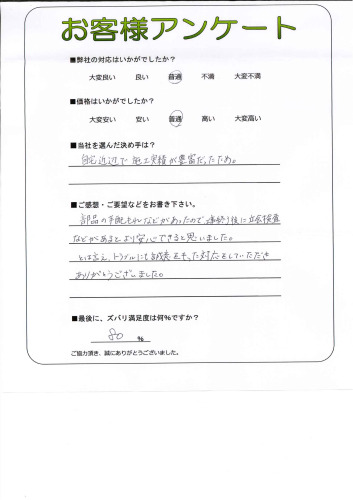 お客様アンケート
■弊社の対応はいかがでしたか？
大変良い 良い 普通 不満 大変不満
■価格はいかがでしたか？
大変安い 安い 普通 高い 大変高い
■当社を選んだ決め手は？
自宅近辺で施工実績が豊富だったため。
■ご感想・ご要望などをお書き下さい。
部品の手配もれなどがあったので、連絡後に立会検査
などがあると、より安心できると思いました。
とは言え、トラブルにも誠意をもった対応をしていただき
ありがとうございました。
■最後に、ズバリ満足度は何％ですか？
80 ％
ご協力頂き、誠にありがとうございました。